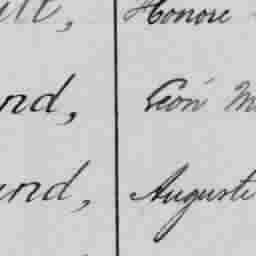 ill, Honoré
nd, Léon M
und, Auguste